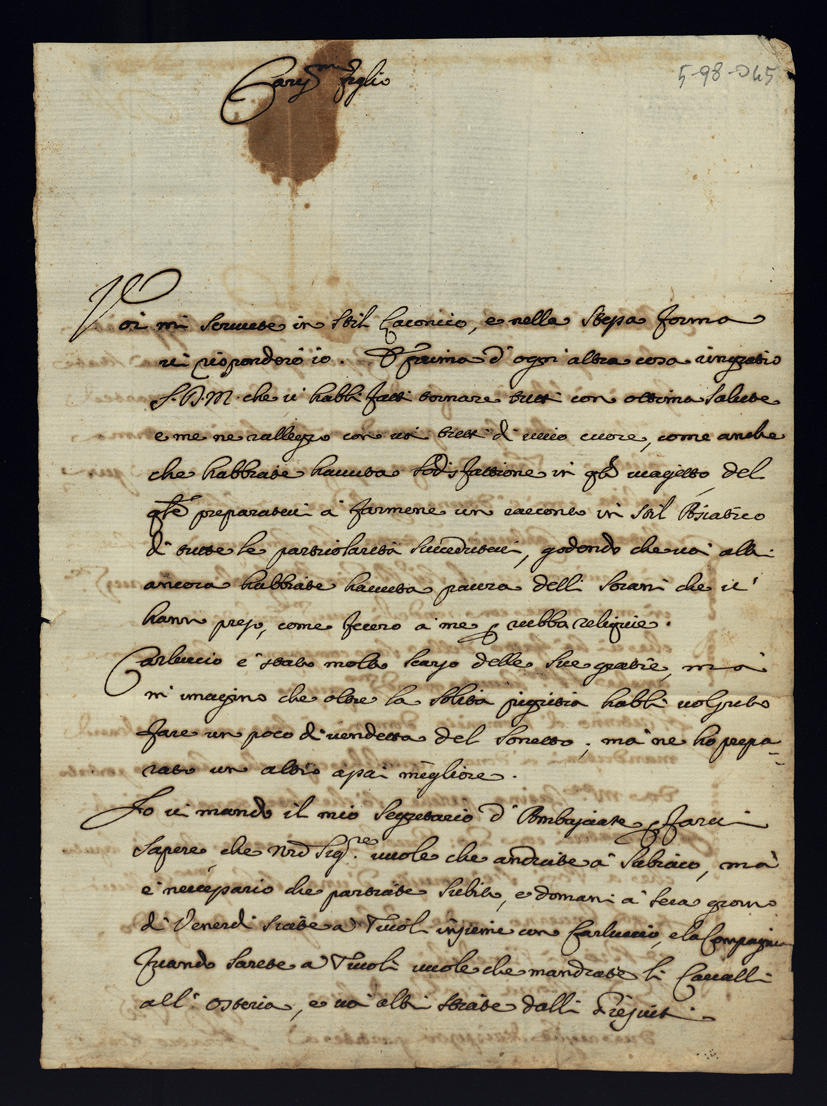 Carissmo figlio
5-98-D45
Voi mi scrivete in stil Laconico, e nella stessa forma
vi risponderò io. E prima d'ogni altra cosa ringratio
S.D.M. che vi habbi fatti tornare tutti con ottima salute
e me ne rallegro con voi tutti di vivo cuore, come anche
che habbiate havuta sodisfattione in qto viaggetto, del
qle preparatevi à farmene un racconto in stil Asiatico
di tutte le particolarità succedutevi, godendo che voi altri
ancora habbiate havuta paura delli Sorani che vi
hanno preso, come fecero à me p rubba reliquie.
Carluccio è stato molto scarso delle sue gratie, mà
m'imagino che oltre la solita pigritia habbi voluto
fare un poco di vendetta del Sonetto, mà ne ho prepa-
rato un altro assai megliore.
Io vi mando il mio Segretario d'Ambasciate p farvi
sapere, che Nro Sigre. vuole che andiate à Subiaco, mà
è necessario che partiate subito, e domani à sera giorno
di Venerdì siate à Tivoli insieme con Carluccio, e la Compagnia
Quando sarete à Tivoli vuole che mandiate li Cavalli
all'osteria, e voi altri stiate dalli Giesuiti